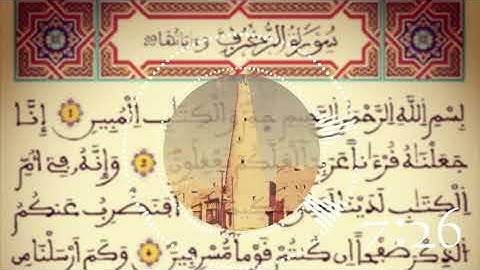 سُورَةُ الزُّخْرُفِ وَءَايَاتُهَا 89
بِسْمِ اللَّهِ الرَّحْمَٰنِ الرَّحِيمِ حَمِ وَالْكِتَٰبِ الْمُبِينِ 1 إِنَّا
جَعَلْنَٰهُ قُرْءَٰناً عَرَبِيّاً لَّعَلَّكُمْ تَعْقِلُونَ 2 وَإِنَّهُ فِي أُمِّ
الْكِتَٰبِ لَدَيْنَا أَفَنَضْرِبُ عَنكُمُ
الذِّكْرَ صَفْحاً إِن كُنتُمْ قَوْماً مُّسْرِفِينَ 4 وَكَمْ أَرْسَلْنَا مِن
7:26